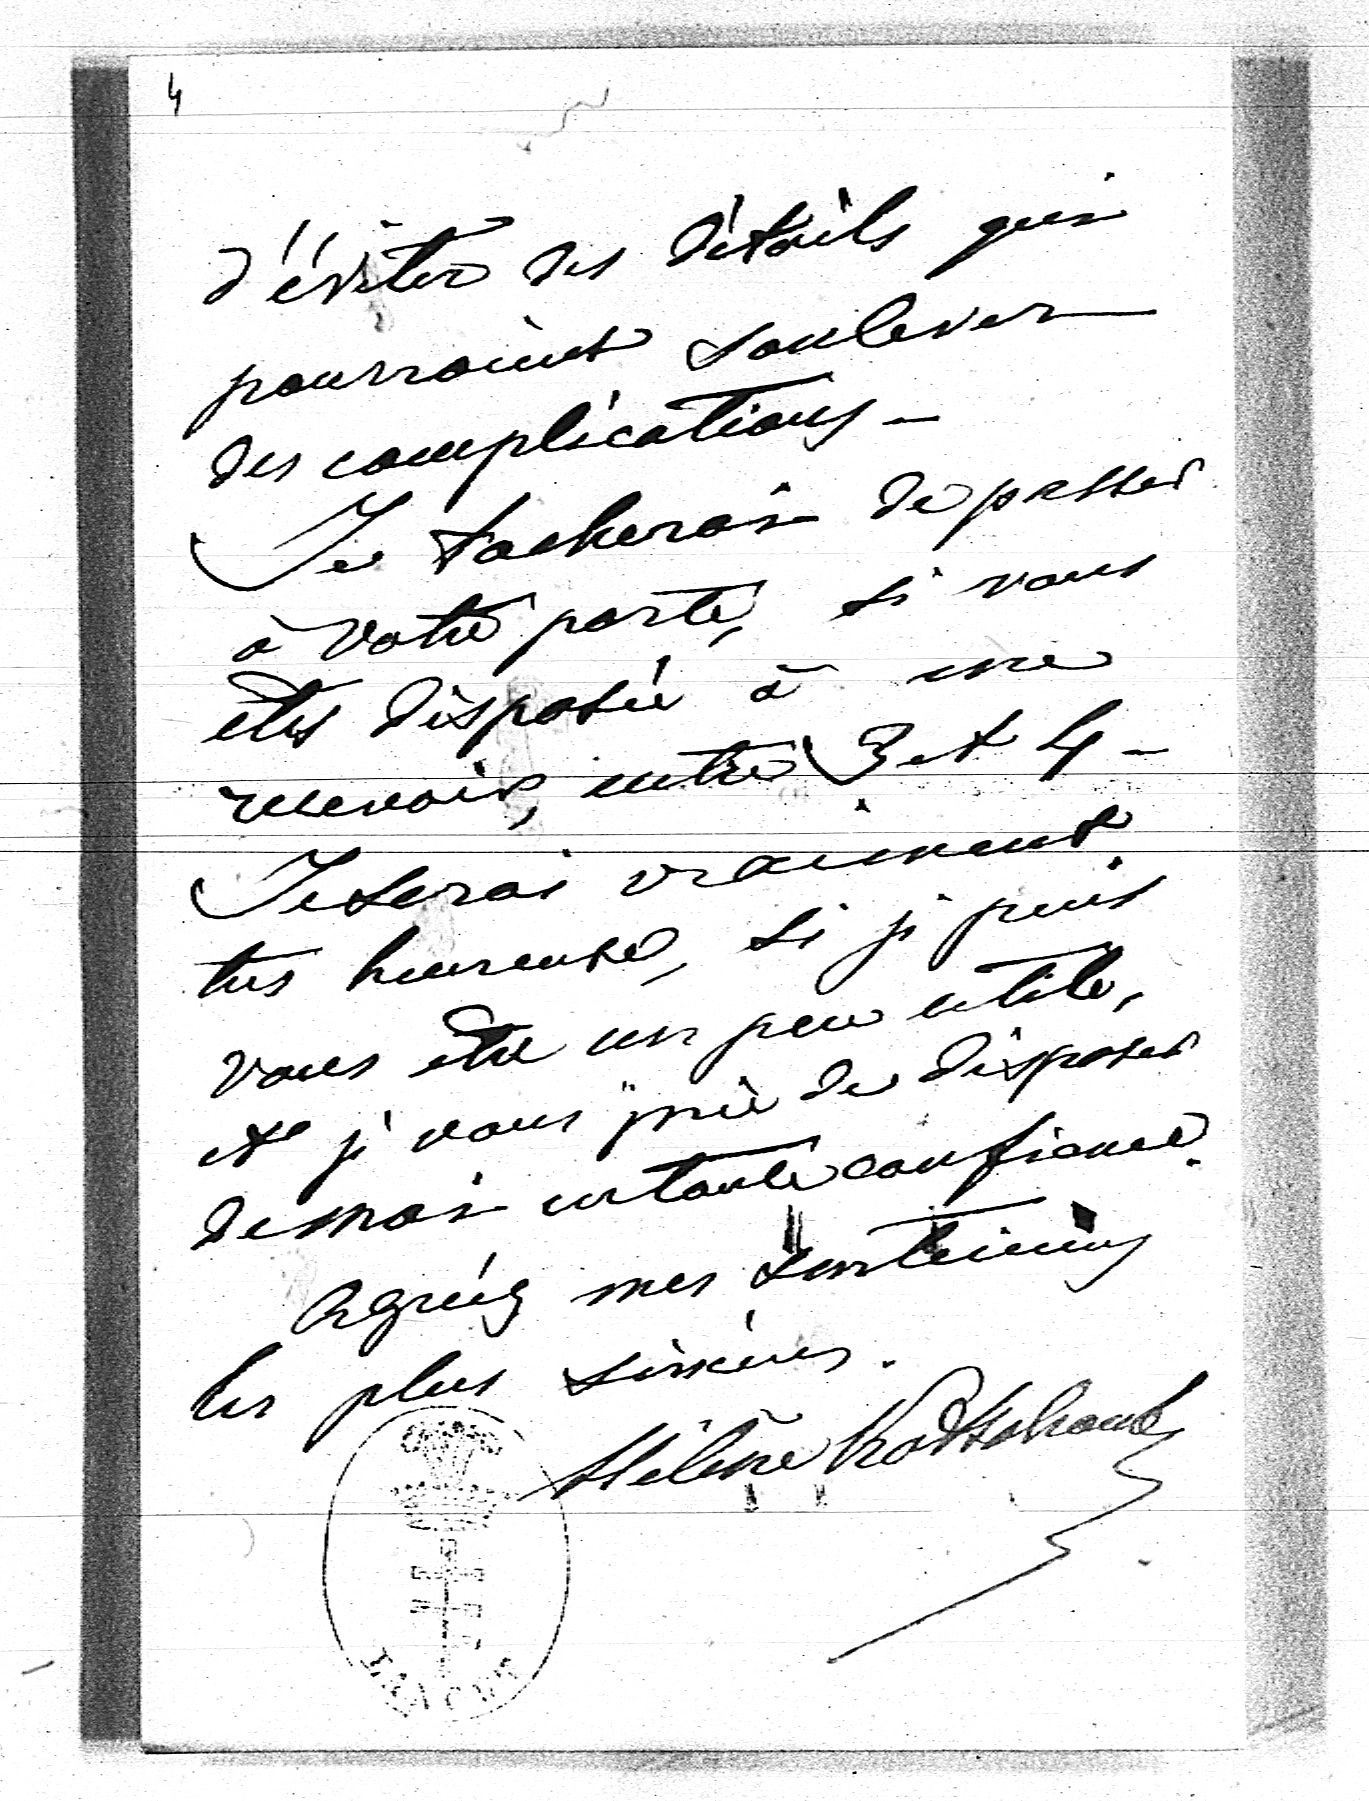 4
d'éviter des détails qui
pourraient soulever
des complications –
Je tacherai de passer
à votre porte, si vous
êtes disposée à me
recevoir, entre 3 et 4 –
Je serai vraiment
très heureuse, si je puis
vous être un peu utile,
et je vous prie de disposer
de moi en toute confiance.
Agréez mes sentiments
les plus sincères.
Hélène